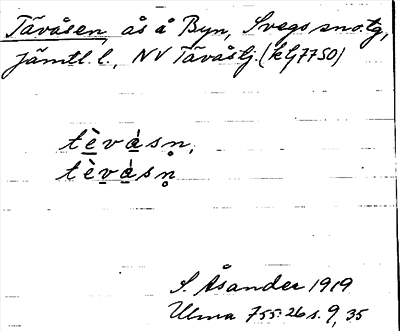 Tävåsen, ås å Byn, Svegs sn o. tg,
Jämtl. l., NV Tävåstj. (k Lj 7750)
tèvàsn̥,
tèvàsn̥
S. Åsander 1919
Ulma 755:26 s. 9, 35